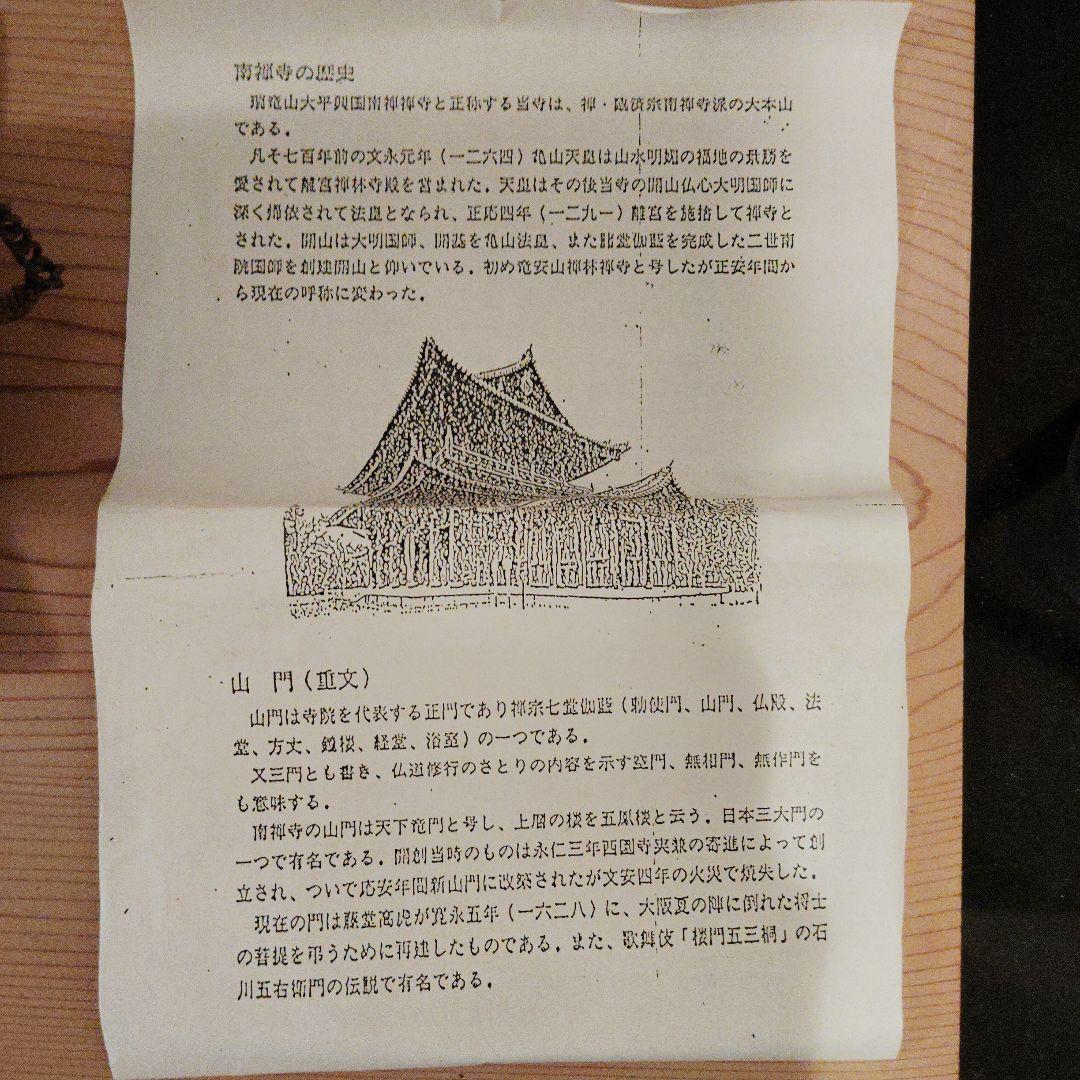 南禅寺の歴史
瑞竜山大平興国南禅禅寺と正称する当寺は、禅・臨済宗南禅寺派の大本山
である.
凡そ七百年前の文永元年(一二六四)亀山天皇は山水明媚の福地の景勝を
愛されて離宮禅林寺殿を営まれた.天皇はその後当寺の開山仏心大明国師に
深く帰依されて法皇となられ、正応四年(一二九一)離宮を施捨して禅寺と
された.開山は大明国師、開基を亀山法皇、また諸堂伽藍を完成した二世南
院国師を創建開山と仰いでいる.初め竜安山禅林禅寺と号したが正安年間か
ら現在の呼称に変わった.
山 門(重文)
山門は寺院を代表する正門であり禅宗七堂伽藍(勅使門、山門、仏殿、法
堂、方丈、鐘楼、経堂、浴室)の一つである.
又三門とも書き、仏道修行のさとりの内容を示す空門、無相門、無作門を
も意味する.
南禅寺の山門は天下竜門と号し、上層の楼を五鳳楼と云う.日本三大門の
一つで有名である.開創当時のものは永仁三年西園寺実兼の寄進によって創
立され、ついで応安年間新山門に改築されたが文安四年の火災で焼失した.
現在の門は藤堂高虎が寛永五年(一六二八)に、大阪夏の陣に倒れた将士
の菩提を弔うために再建したものである.また、歌舞伎「楼門五三桐」の石
川五右衛門の伝説で有名である.